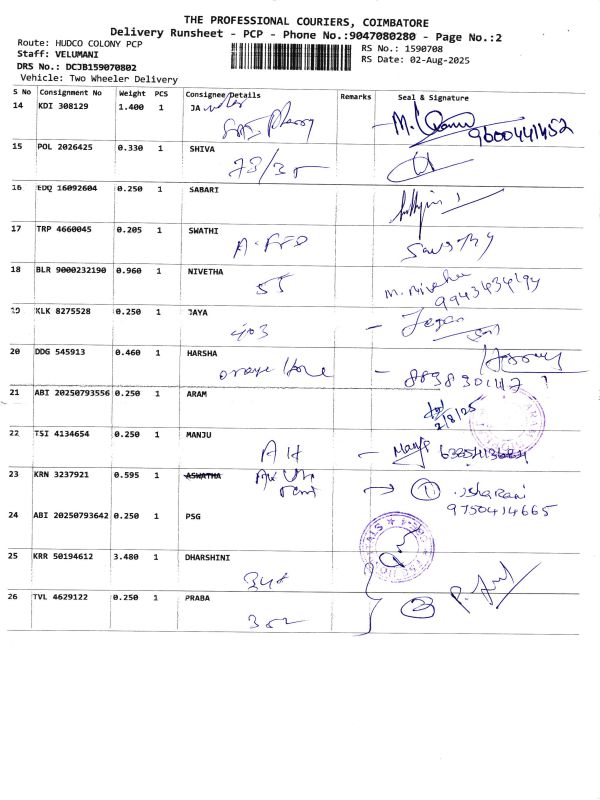 THE PROFESSIONAL COURIERS, COIMBATORE
Delivery Runsheet - PCP - Phone No.:9047080280 - Page No.:2
Route: HUDCO COLONY PCP
Staff: VELUMANI
DRS No.: DCJB159070802
Vehicle: Two Wheeler Delivery
RS No.: 1590708
RS Date: 02-Aug-2025
S No Consignment No Weight PCS Consignee/Details Remarks Seal & Signature
14 KDI 308129 1.400 1 JA
9600441452
15 POL 2026425 0.330 1 SHIVA
73/35
16 EDQ 16092604 0.250 1 SABARI
17 TRP 4660045 0.205 1 SWATHI
18 BLR 9000232190 0.960 1 NIVETHA
55 M. Nivetha
9943434194
19 KLK 8275528 0.250 1 JAYA
403
20 DDG 545913 0.460 1 HARSHA
21 ABI 20250793556 0.250 1 ARAM
2/8/25
22 TSI 4134654 0.250 1 MANJU
AH
23 KRN 3237921 0.595 1 ASWATHA
1 Usha Rani
9750414665
24 ABI 20250793642 0.250 1 PSG
25 KRR 50194612 3.480 1 DHARSHINI
348
26 TVL 4629122 0.250 1 PRABA
352 2